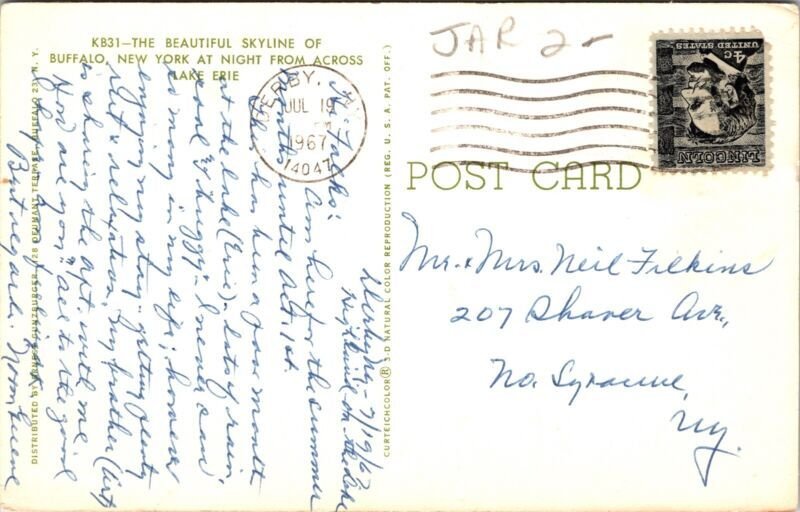 KB31—THE BEAUTIFUL SKYLINE OF
BUFFALO, NEW YORK AT NIGHT FROM ACROSS
LAKE ERIE
DISTRIBUTED BY GUNZBURGER, 128 TERRACE, BUFFALO 23, N. Y.
Derby, 7/19/67
on the Lake
Hi Folks:
Am here for the summer
months until Oct. 1st
has been a poor month
at the lake (Erie) - lots of rain,
cool & "muggy" - I never saw
so many in my life; however
enjoying my stay - getting plenty
rest & relaxation. My brother (Art)
is sharing the apt. with me
How are you? "all to the good"
I hope.
Best regards, Norm Greene
CURTEICHCOLOR® 3-D NATURAL COLOR REPRODUCTION (REG. U. S. A. PAT. OFF.)
DERBY, N.Y.
JUL 19
1967
14047
JAR 2-
4¢
UNITED STATES
LINCOLN
POST CARD
Mr. & Mrs. Neil Filkins
207 Shaver Ave.,
No. Syracuse,
N.Y.